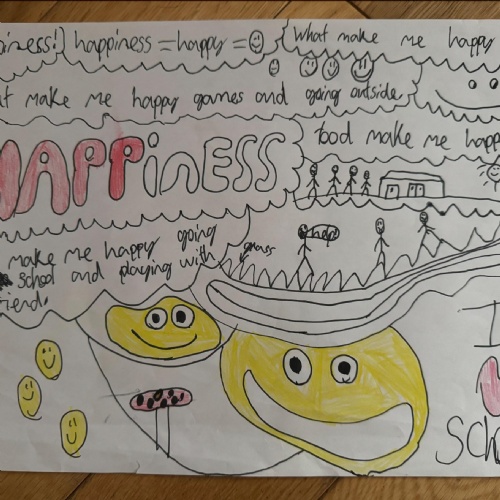 iness! happiness = happy =
What make me happy
at make me happy games and going outside
HAPPinESS
food make me happ
make me happy going
school and playing with
friend.
grass
I
Sch